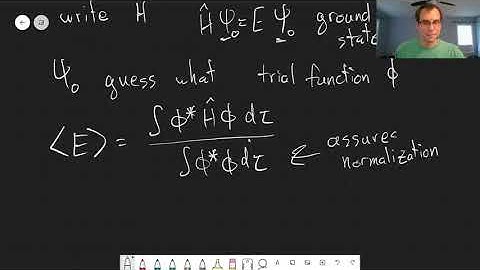 write H Ĥψ₀=Eψ₀ ground
state
ψ₀ guess what trial function ϕ
⟨E⟩ = ∫ϕ*Ĥϕ dτ / ∫ϕ*ϕ dτ ← assures
normalization